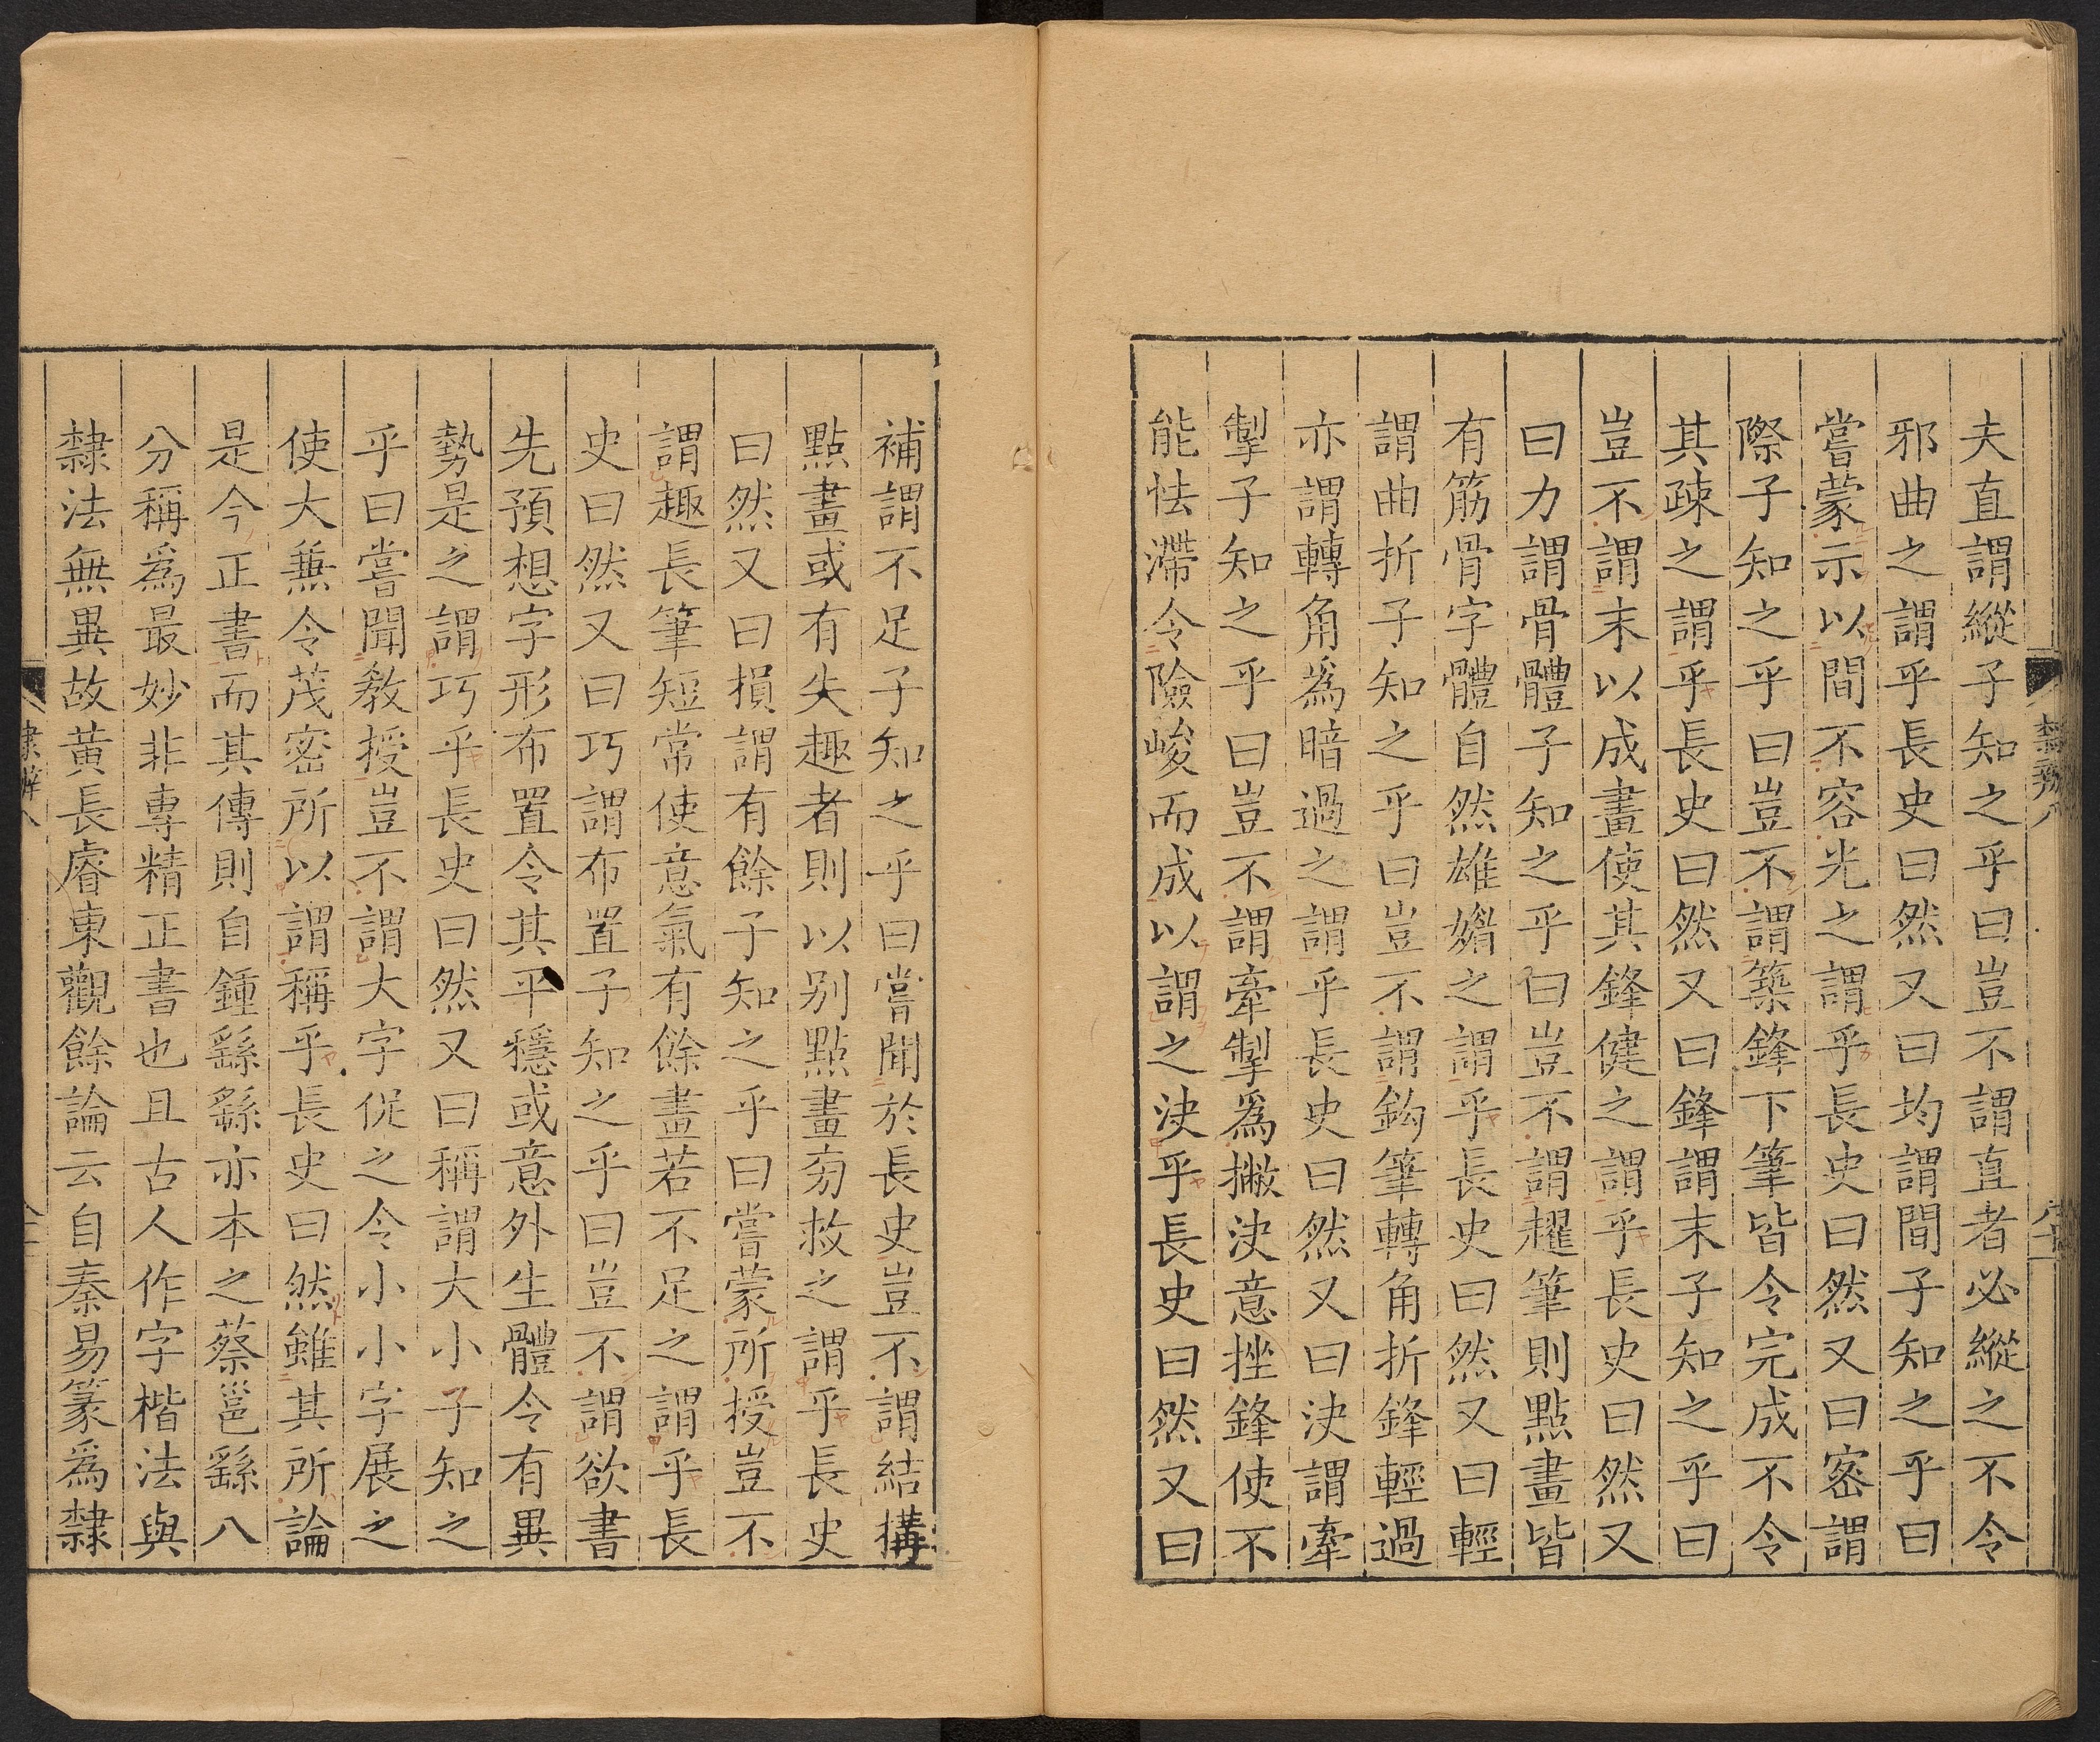 夫直謂縱子知之乎曰豈不謂直者必縱之不令
邪曲之謂乎長史曰然又曰均謂間子知之乎曰
嘗蒙示以間不容光之謂乎長史曰然又曰密謂
際子知之乎曰豈不謂築鋒下筆皆令完成不令
其疎之謂乎長史曰然又曰鋒謂末子知之乎曰
豈不謂末以成畫使其鋒健之謂乎長史曰然又
曰力謂骨體子知之乎曰豈不謂趯筆則點畫皆
有筋骨字體自然雄媚之謂乎長史曰然又曰輕
謂曲折子知之乎曰豈不謂鈎筆轉角折鋒輕過
亦謂轉角爲暗過之謂乎長史曰然又曰決謂牽
掣子知之乎曰豈不謂牽掣爲撇決意挫鋒使不
能怯滯令險峻而成以謂之決乎長史曰然又曰
補謂不足子知之乎曰嘗聞於長史豈不謂結搆
點畫或有失趣者則以别點畫旁救之謂乎長史
曰然又曰損謂有餘子知之乎曰嘗蒙所授豈不
謂趣長筆短常使意氣有餘畫若不足之謂乎長
史曰然又曰巧謂布置子知之乎曰豈不謂欲書
先預想字形布置令其平穩或意外生體令有異
勢是之謂巧乎長史曰然又曰稱謂大小子知之
乎曰嘗聞教授豈不謂大字促之令小小字展之
使大兼令茂密所以謂稱乎長史曰然雖其所論
是今正書而其傳則自鍾繇繇亦本之蔡邕繇八
分稱爲最妙非專精正書也且古人作字楷法與
隸法無異故黄長睿東觀餘論云自秦易篆爲隸
隸辨八